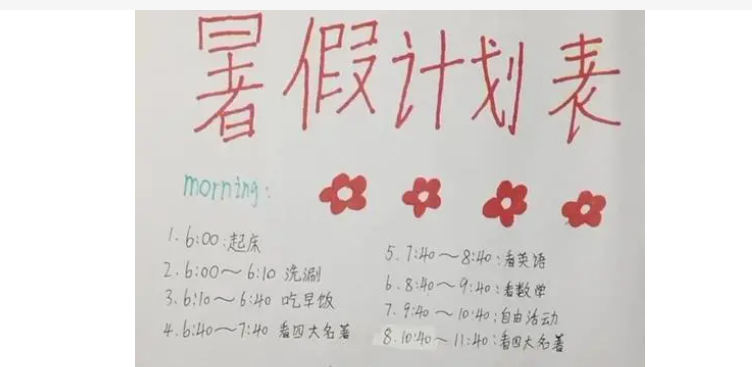 暑假计划表
morning:
1. 6:00:起床
2. 6:00～6:10 洗漱
3. 6:10～6:40 吃早饭
4. 6:40～7:40 看四大名著
5. 7:40～8:40:看英语
6. 8:40～9:40:看数学
7. 9:40～10:40:自由活动
8. 10:40～11:40:看四大名著